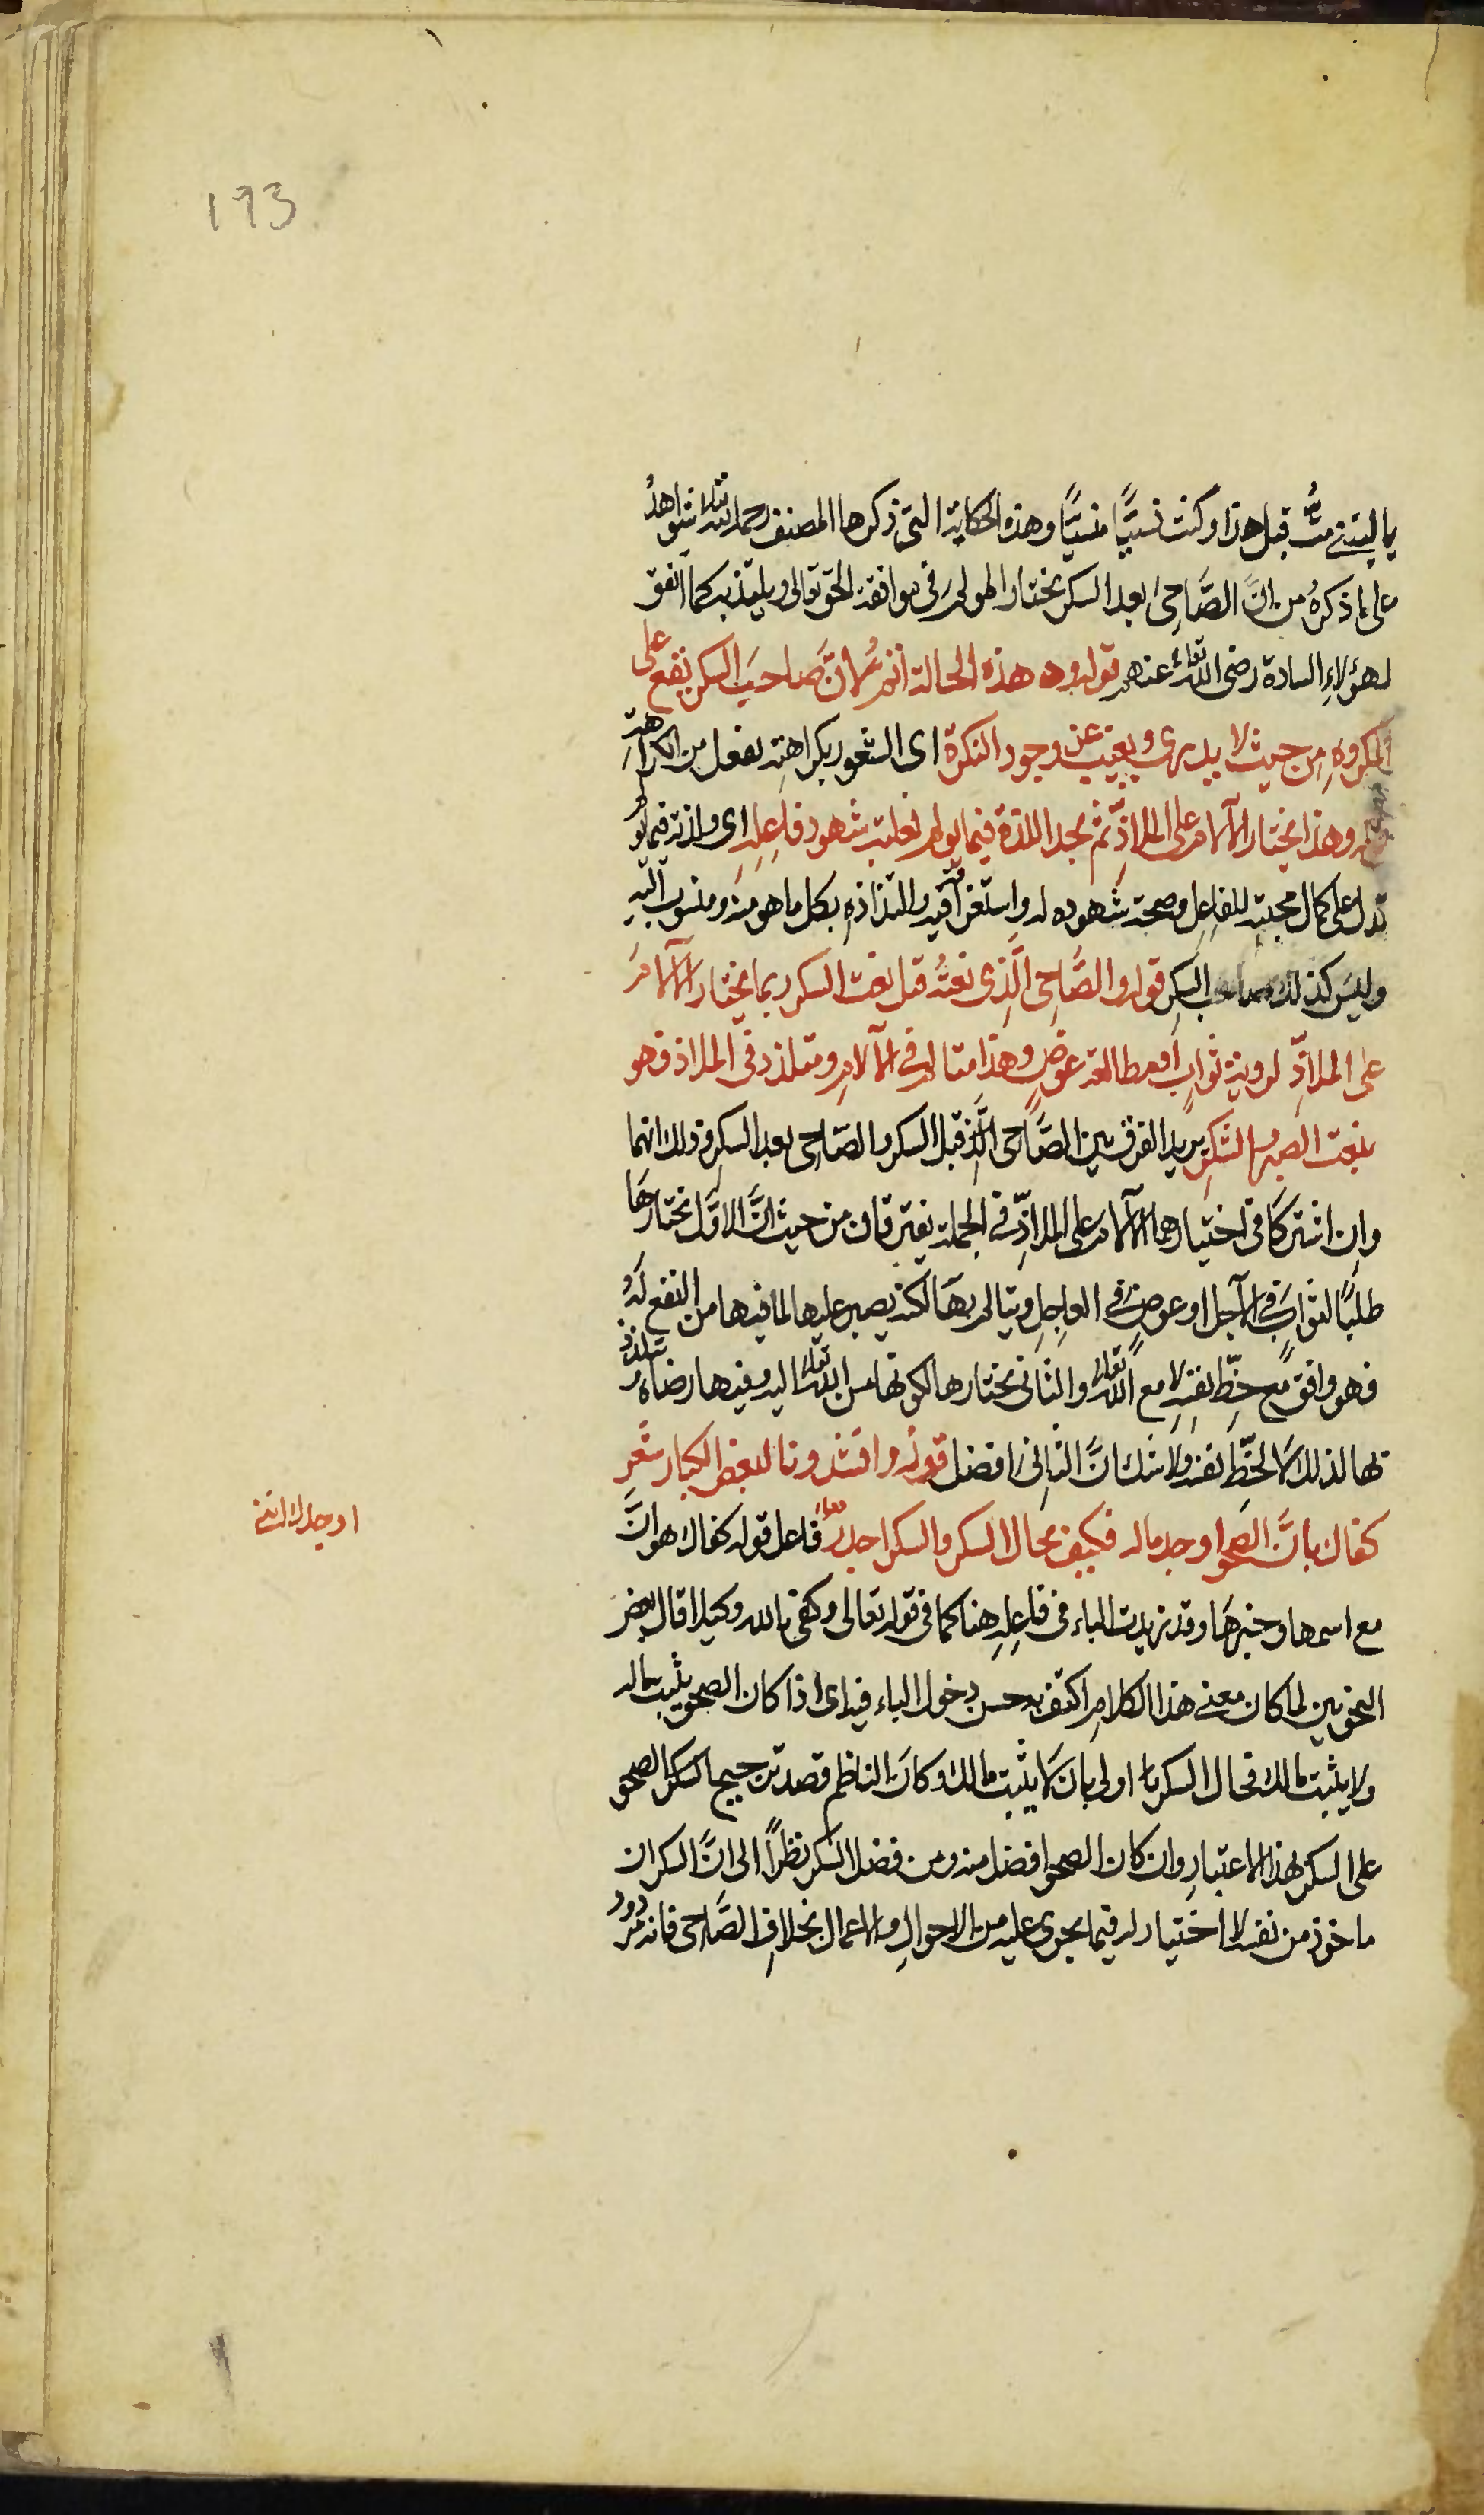 193
يا ليتني متُّ قبل هذا وكنت نسيًّا منسيًّا وهذه الحكاية التي ذكرها المصنف رحمه الله تعالى شواهدُ
على ما ذكرهُ من انَّ الصَّاحيَ بعد السكر يختار المولم في موافقة الحق تعالى ويلتذ به كما اتفق
لهؤلاءِ السادة رضى الله تعالى عنهم قوله وهذه الحالة اتم لانَّ صاحبَ السكر يقع على
المكروهِ من حيث لا يدرى ويغيب عن وجود النكرة اى الشعور بكراهته بفعل من الكراهة
وهذا يختار الآلام على الملاذِّ ثم يجد اللذة فيما يولم لغلبة شهود فاعِلهِ اى ولذته فيما يو
تدل على كمال محبته للفاعِل وصحة شهوده له واستغراقه فيه والتذاذهِ بكل ما هو منه ومنسوب اليه
وليسَ كذلك صاحب السكرِ قوله والصَّاحِى الَّذِى نعتُهُ قبل نعت السكر ربما يختار الآلامَ
على الملاذِّ لروية ثوابٍ او مطالعة عوضٍ وهذا متالم في الآلامِ ومتلذذ في الملاذ فهو
بنعت الصحو والسُّكرِ يريد الفرق بين الصَّاحى الَّذِ قبل السكر والصَّاحِى بعد السكر وذلك انهما
وان اشتركَا في اختيارهما الآلام على الملاذِّ في الجملة يفترقان من حيث انَّ الاوَّل يختارهَا
طلبًا لثوابٍ في الآجل او عوضٍ في العاجِل ويتالم بهَا لكنه يصبر عليها لما فيها من النفع لهُ
فهو واقفٌ مع حِظِّ نفسِهِ لا مع الله تعالى والثانى يختارها لكونها من الله تعالى اليه وفيها رضاهُ فتلذذُ
بها لذلك لَا لحظِّ نفسه ولا شك انَّ الثانى افضل قوله وانشدونا لبعض الكبار شعر
كفاك بانَّ الصحو اوجد ماله فكيف بحال السكر والسكر اجدرُ فاعل قوله كفاك هو انَّ
اوجد انى
مع اسمها وخبرهَا وقد زيدت الباء فى فاعِلهِ هنا كما فى قوله تعالى وكفى بالله وكيلا قال بعض
النحويين لما كان معنى هذا الكلامِ اكتف به حسن دخول الباء فيه اى اذا كان الصحو يثبت ماله
ولا يثبت مالك فحال السكر اولى بان لَا يثبت مالك وكانَ الناظم قصد ترجيح السكر الصحو
على السكر بهذا الاعتبارِ وان كان الصحو افضل منه ومن فضل السكر نظرًا الى انَّ السكران
ماخوذ من نفسه لا اختيار له فيما يجرى عليه من الاحوالِ والاعمال بخلافِ الصَّاحِى فانه مردود